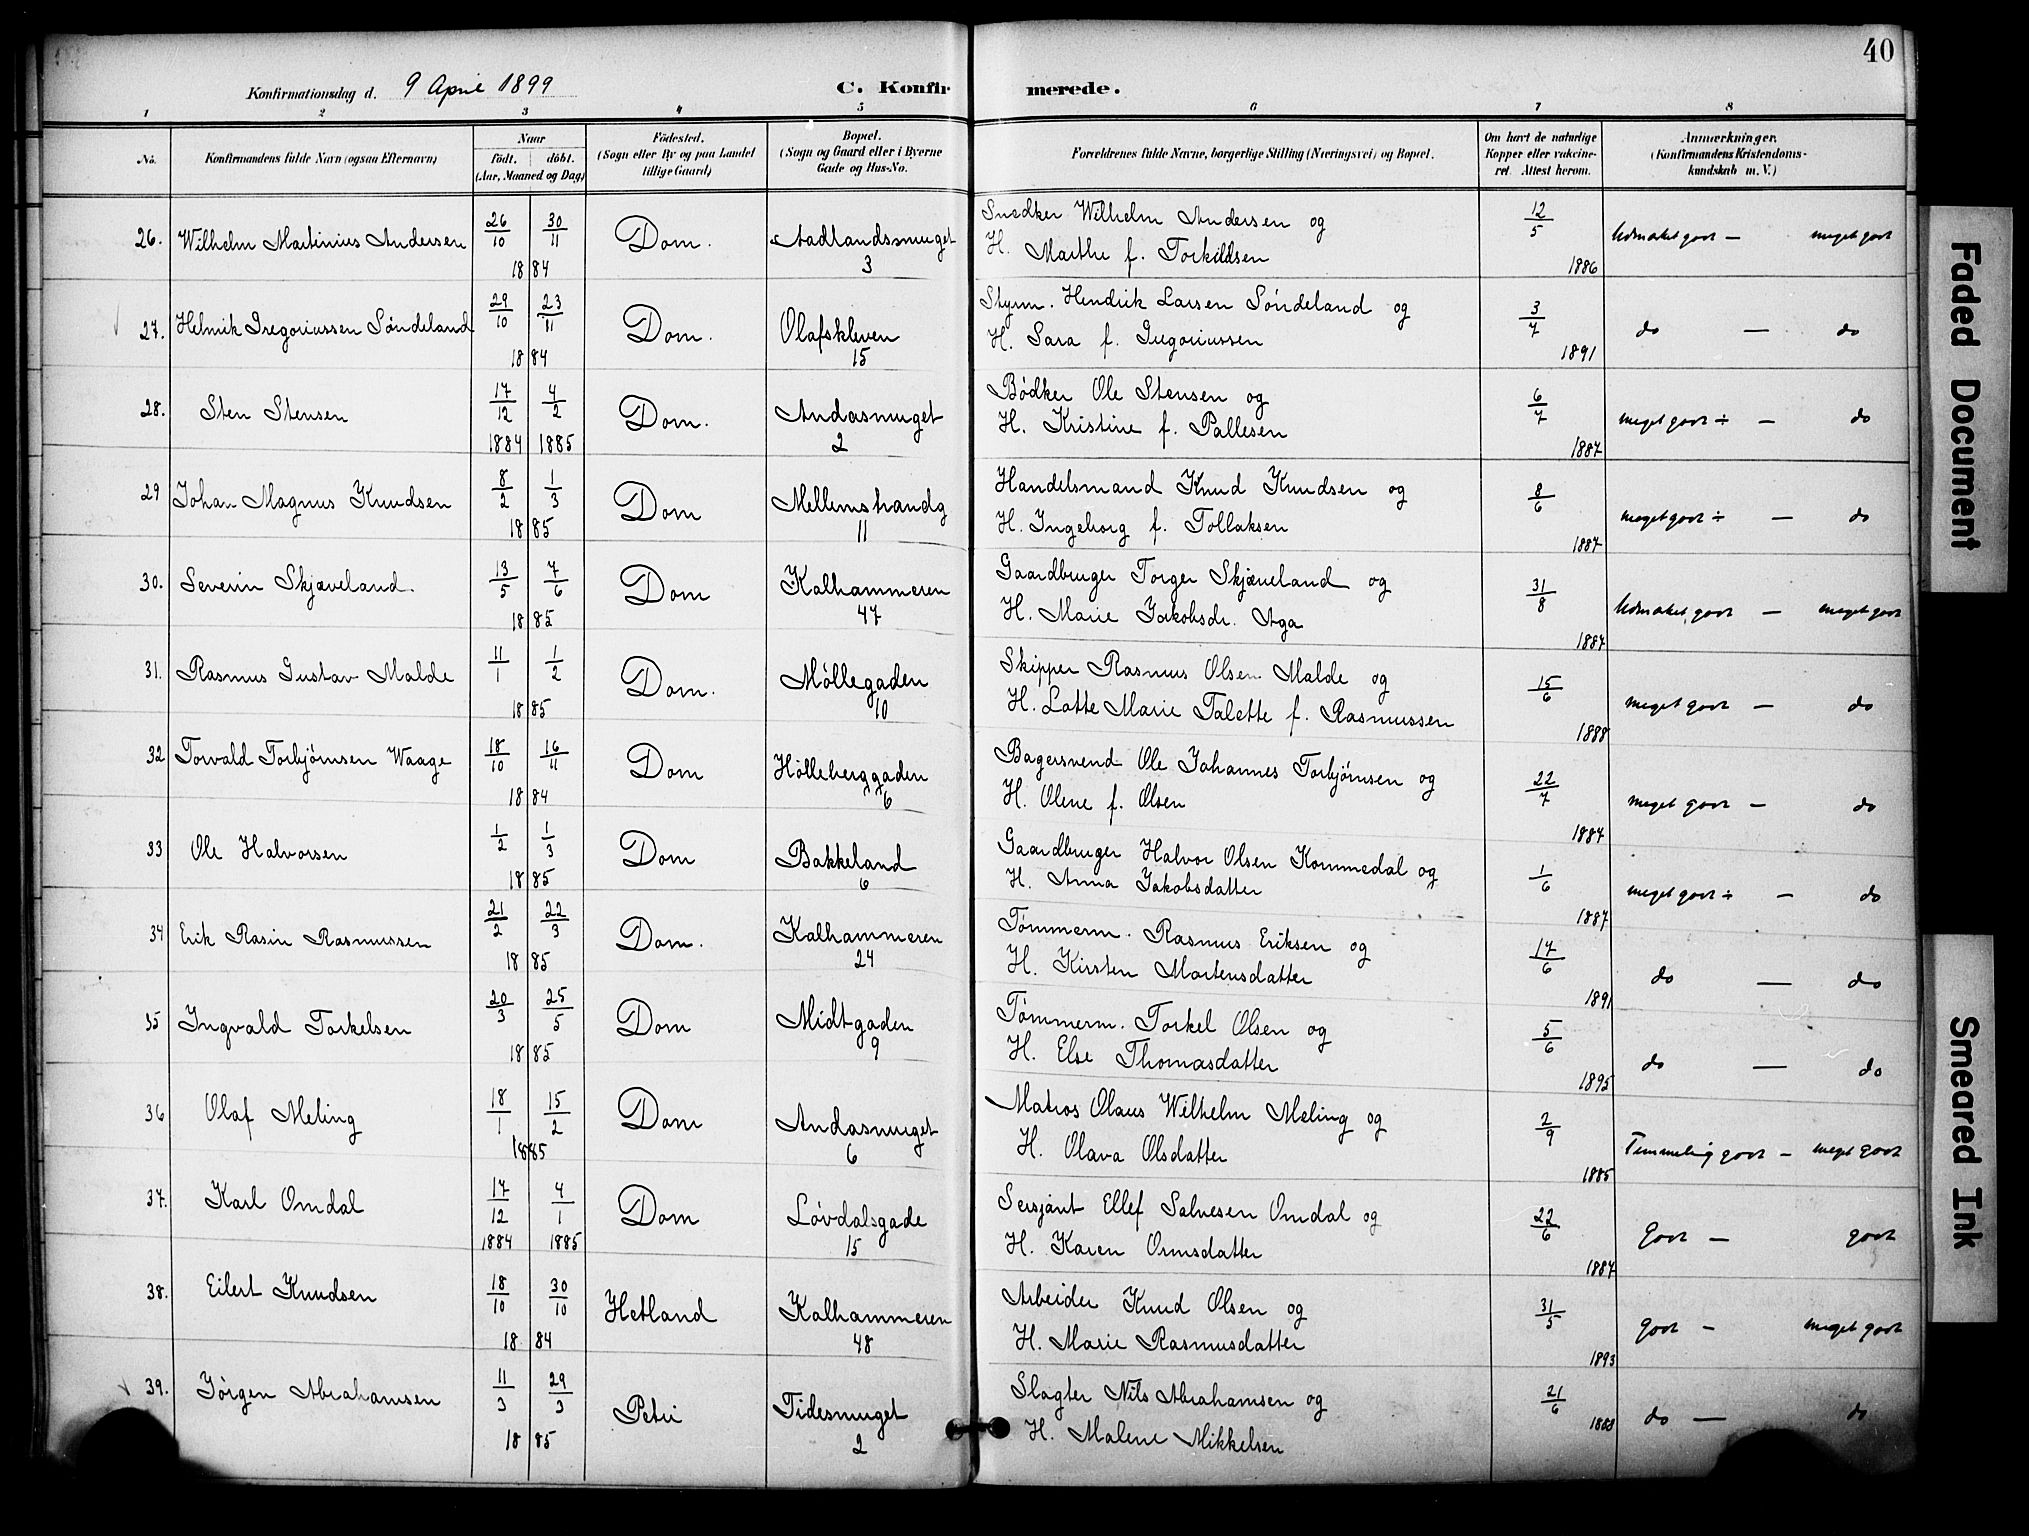 40
Konfirmationsdag d. 9 April 1899
C. Konfir merede.
1 2 3 4 5 6 7 8
No. Konfirmandens fulde Navn (ogsaa Efternavn) Naar født. døbt. (Aar, Maaned og Dag) Fødested. (Sogn eller By og paa Landet tillige Gaard) Bopæl. (Sogn og Gaard eller i Byerne Gade og Hus-No. Forældrenes fulde Navne, borgerlige Stilling (Næringsvei) og Bopæl. Om havt de naturlige Kopper eller vakcineret. Attest herom. Anmærkninger. (Konfirmandens Kristendomskundskab m. V.)
26. Wilhelm Martinius Andersen 26/10 30/11 Dom. Aadlandsmuget Snedker Wilhelm Andersen og 12/5 Udmærket godt — meget godt
1884 3 H. Marthe f. Torkildsen 1886
27. Helmik Gregoriussen Søndeland 29/10 23/11 Dom. Olafskleven Styrm. Hendrik Larsen Søndeland og 3/7 do — do
1884 15 H. Sara f. Gregoriussen 1891
28. Sten Stensen 17/12 4/2 Dom. Andasmuget Bødker Ole Stensen og 6/7 meget godt ÷ — do
1884 1885 2 H. Kristine f. Pallesen 1887
29 Johan Magnus Knudsen 8/2 1/3 Dom Mellemstrandg Handelsmand Knud Knudsen og 8/6 meget godt ÷ — do
1885 11 H. Ingeborg f. Tollaksen 1887
30. Severin Skjæveland 13/5 7/6 Dom Kalhammeren Gaardbruger Torger Skjæveland og 31/8 Udmærket godt — meget godt
1885 47 H. Marie Jakobsdr. Aga 1887
31. Rasmus Gustav Malde 11/1 1/2 Dom. Møllegaden Skipper Rasmus Olsen Malde og 15/6 meget godt — do
1885 10 H. Lotte Marie Talette f. Rasmussen 1888
32 Torvald Torbjørnsen Waage 18/10 16/11 Dom Hølleberggaden Bagersvend Ole Johannes Torbjørnsen og 22/7 meget godt — do
1884 6 H. Olene f. Olsen 1887
33 Ole Halvorsen 1/2 1/3 Dom Bakkeland Gaardbruger Halvor Olsen Kommedal og 1/6 meget godt ÷ — do
1885 6 H. Anna Jakobsdatter 1887
34 Erik Rasin Rasmussen 21/2 22/3 Dom. Kalhammeren Tømmerm. Rasmus Eriksen og 17/6 do — do
1885 24 H. Kirsten Mortensdatter 1891
35 Ingvald Torkelsen 20/3 25/5 Dom Midtgaden Tømmerm. Torkel Olsen og 5/6 do — do
1885 9 H. Else Thomasdatter 1895
36 Olaf Meling 18/1 15/2 Dom Andasmuget Matros Olaus Wilhelm Meling og 2/9 Temmelig godt — meget godt
1885 6 H. Olava Olsdatter 1885
37. Karl Omdal 17/12 4/1 Dom Løvdalsgade Sersjant Ellef Salvesen Omdal og 22/6 godt — godt
1884 1885 15 H. Karen Ormsdatter 1887
38. Eilert Knudsen 18/10 30/10 Hetland Kalhammeren Arbeider Knud Olsen og 31/5 godt — meget godt
1884 48 H. Marie Rasmusdatter 1893
39. Jørgen Abrahamsen 11/3 29/3 Petri Tidesmuget Slagter Nils Abrahamsen og 21/6 do — do
1885 2 H. Malene Mikkelsen 1888
Faded Document
Smeared Ink